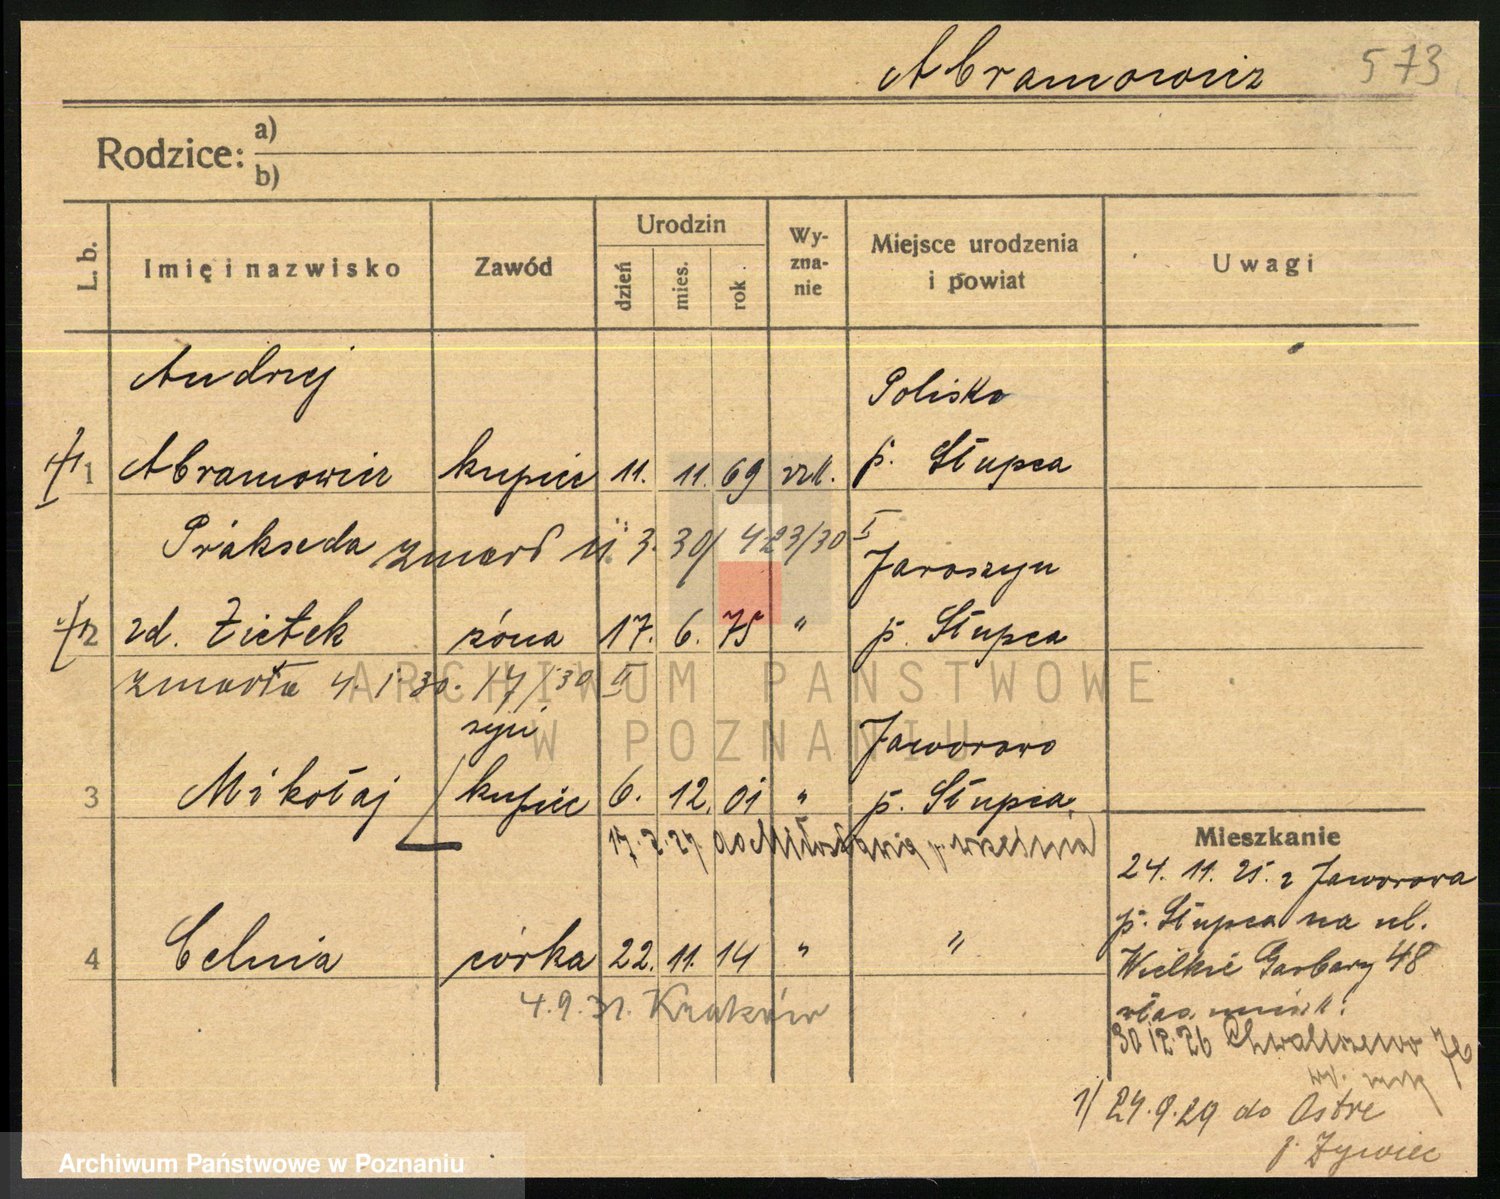 Abramowicz 573
Rodzice: a)
b)
L. b. Imię i nazwisko Zawód Urodzin dzień mies. rok Wy-zna-nie Miejsce urodzenia i powiat Uwagi
Andrzej Polisko
1 Abramowicz kupiec 11. 11. 69 rzk. p. Słupca
Prakseda zmarł 11 3. 30/ 423/30 I Jaroszyn
2 zd. Ziętek żona 17. 6. 75 " p. Słupca
zmarła 4. 1. 30. 17/30 II
syn Jaworowo
3 Mikołaj kupiec 6. 12. 01 " p. Słupca
17. 5. 27 do Miłosławia p. Września
4 Celnia córka 22. 11. 14 " "
4. 9. 31. Kraków
Mieszkanie
24. 11. 25. z Jaworowa
p. Słupca na ul.
Wielkie Garbary 48
30 12. 26 Chwaliszewo
1/ 24. 9. 29 do Ostre
p. Żywiec
ARCHIWUM PAŃSTWOWE
W POZNANIU
Archiwum Państwowe w Poznaniu